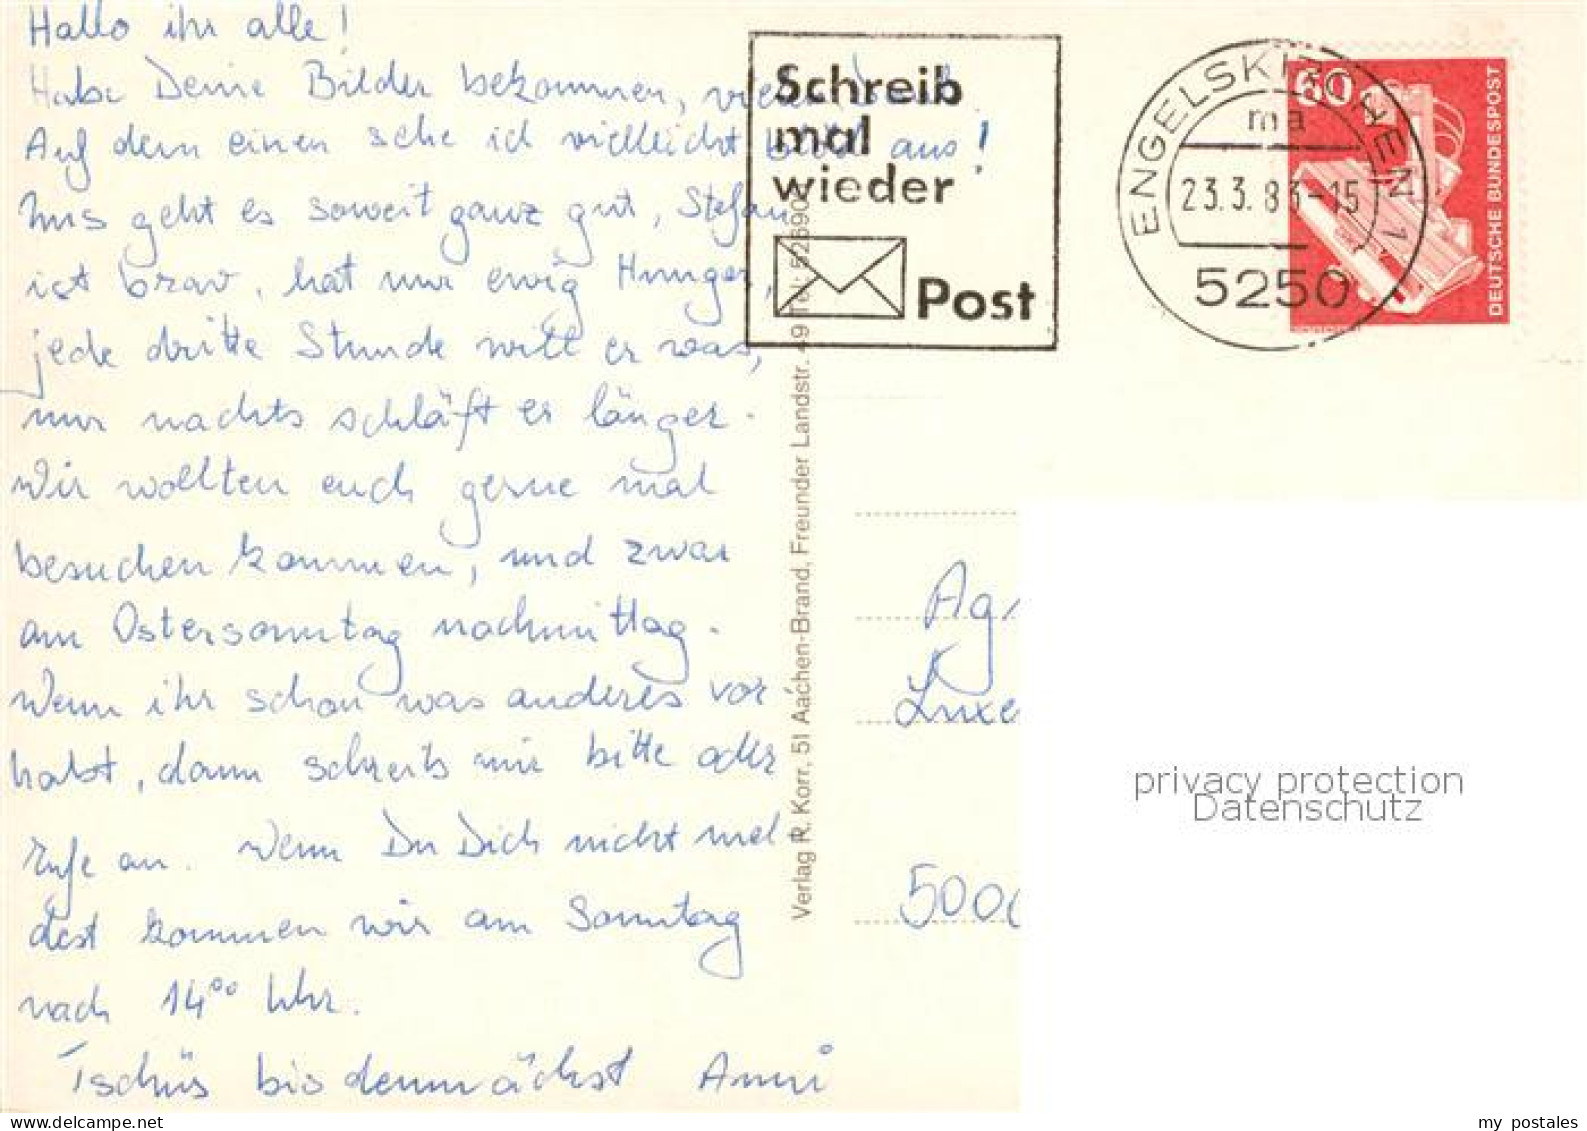 Hallo ihr alle!
Habe Deine Bilder bekommen, vielen Dank
Auf dem einen sehe ich vielleicht blöd aus!
Uns geht es soweit ganz gut, Stefan
ist brav, hat nur ewig Hunger,
jede dritte Stunde will er was,
nur nachts schläft er länger.
Wir wollten euch gerne mal
besuchen kommen, und zwar
am Ostersonntag nachmittag.
Wenn ihr schon was anderes vor
habt, dann schreib mir bitte oder
rufe an. Wenn Du Dich nicht mel-
dest kommen wir am Sonntag
nach 14⁰⁰ Uhr.
Tschüs bis demnächst Anni
Schreib
mal
wieder
Post
ENGELSKIRCHEN 1
ma
23.3.83-15
5250
60
DEUTSCHE BUNDESPOST
Verlag R. Korr, 51 Aachen-Brand, Freunder Landstr. 49 Tel: 52690
Luxe
5000
privacy protection
Datenschutz
my_postales